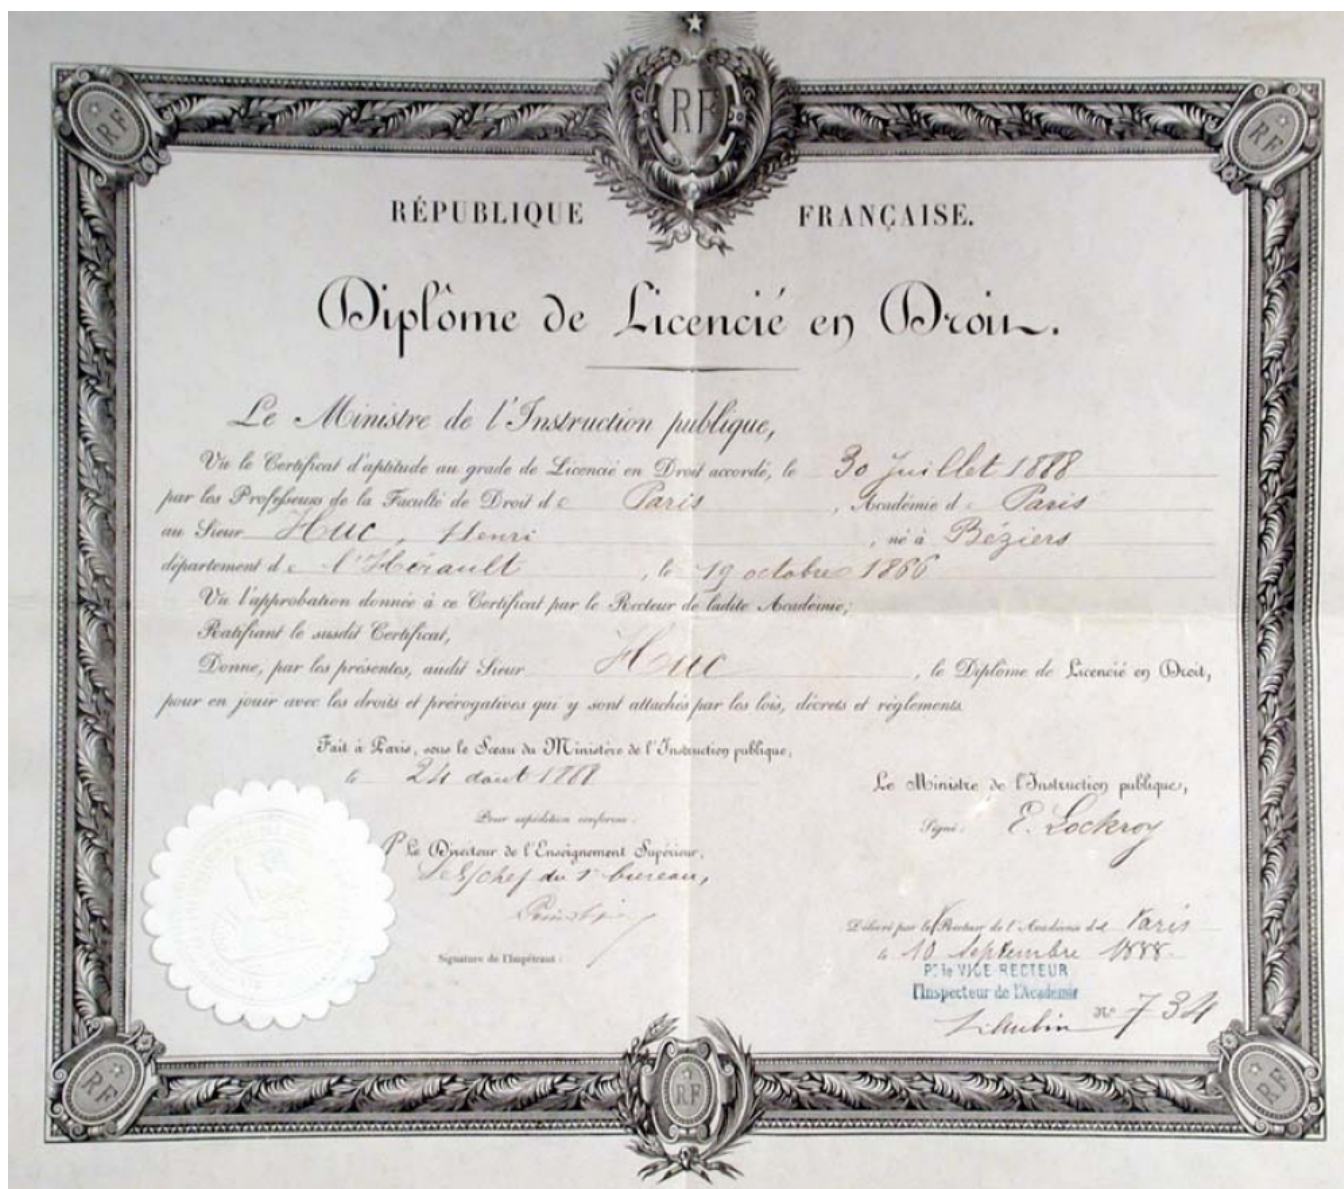 RF
RF
RF
RÉPUBLIQUE FRANÇAISE.
Diplôme de Licencié en Droit.
Le Ministre de l'Instruction publique,
Vu le Certificat d'aptitude au grade de Licencié en Droit accordé, le 30 Juillet 1888
par les Professeurs de la Faculté de Droit de Paris, Académie de Paris
au Sieur Huc, Henri, né à Béziers
département de l'Hérault, le 19 octobre 1866
Vu l'approbation donnée à ce Certificat par le Recteur de ladite Académie;
Ratifiant le susdit Certificat,
Donne, par les présentes, audit Sieur Huc, le Diplôme de Licencié en Droit,
pour en jouir avec les droits et prérogatives qui y sont attachés par les lois, décrets et règlements.
Fait à Paris, sous le Sceau du Ministère de l'Instruction publique,
le 24 août 1888
Pour expédition conforme:
Pr Le Directeur de l'Enseignement Supérieur,
Le S/chef du 1er bureau,
Signature de l'Impétrant:
Le Ministre de l'Instruction publique,
Signé: E. Lockroy
Délivré par le Recteur de l'Académie de Paris
le 10 Septembre 1888.
Pr le VICE-RECTEUR
l'Inspecteur de l'Académie
No 734
RF
RF
RF